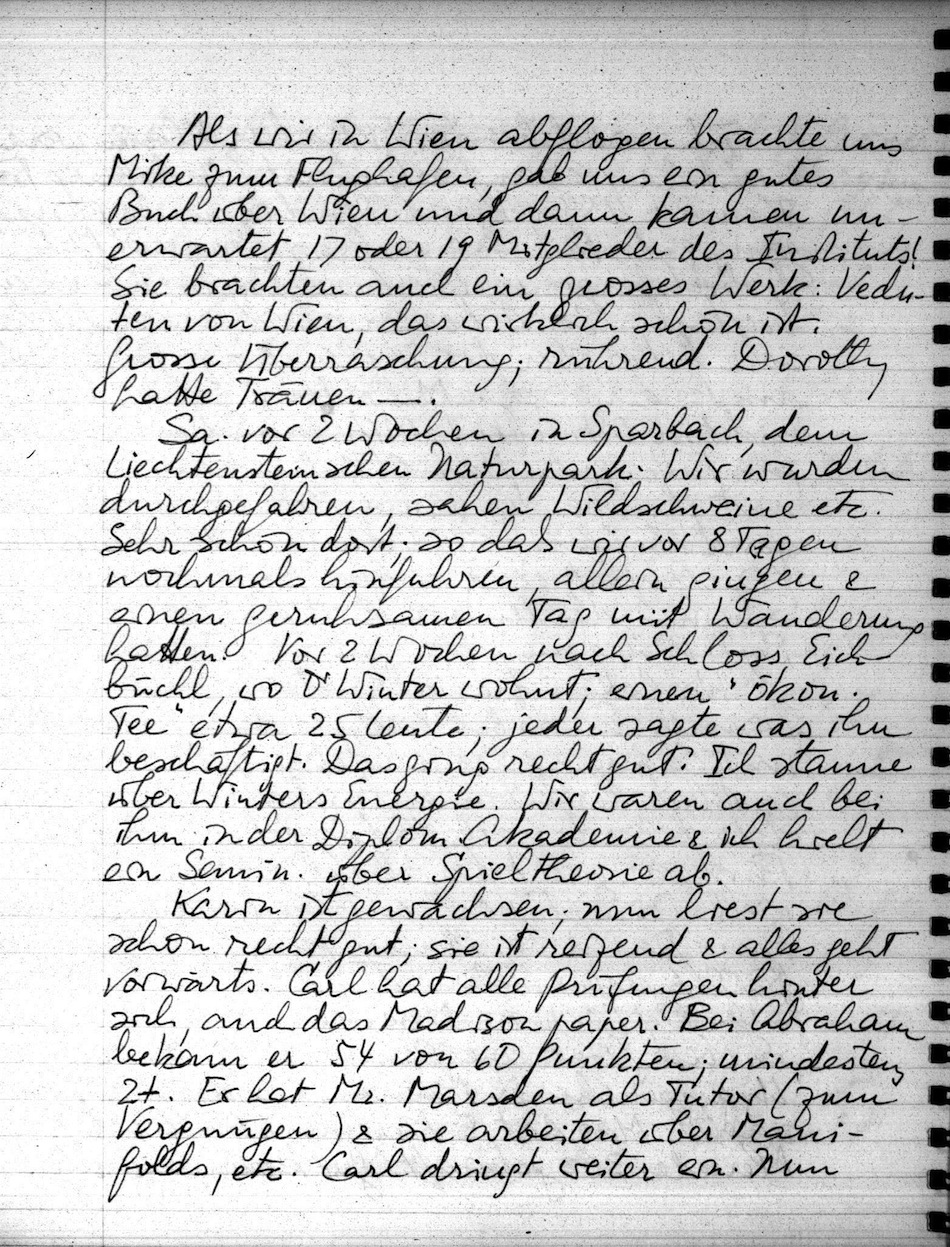 Als wir in Wien abflogen brachte uns
Mike zum Flughafen, gab uns ein gutes
Buch über Wien und dann kamen un-
erwartet 17 oder 19 Mitglieder des Instituts!
Sie brachten auch ein grosses Werk: Vedu-
ten von Wien, das wirklich schön ist.
Grosse Überraschung; rührend. Dorothy
hatte Tränen —.
Sa. vor 2 Wochen in Sparbach, dem
Liechtensteinschen Naturpark. Wir wurden
durchgefahren, sahen Wildschweine etc.
Sehr schön dort; so dass wir vor 8 Tagen
nochmals hinfuhren, allein gingen &
einen geruhsamen Tag mit Wanderung
hatten. Vor 2 Wochen nach Schloss Eich-
büchl, wo Winter wohnt; einen "ökon.
Tee" etwa 25 Leute; jeder sagte was ihn
beschäftigt. Das ging recht gut. Ich staune
über Winters Energie. Wir waren auch bei
ihm in der Diplom. Akademie & ich hielt
ein Semin. über Spieltheorie ab.
Karin ist gewachsen; nun liest sie
schon recht gut; sie ist reizend & alles geht
vorwärts. Carl hat alle Prüfungen hinter
sich, auch das Madison paper. Bei Abraham
bekam er 54 von 60 Punkten; mindestens
2+. Er hat Mr. Marsden als Tutor (zum
Vergnügen) & sie arbeiten über Mani-
folds, etc. Carl dringt weiter ein. Nun